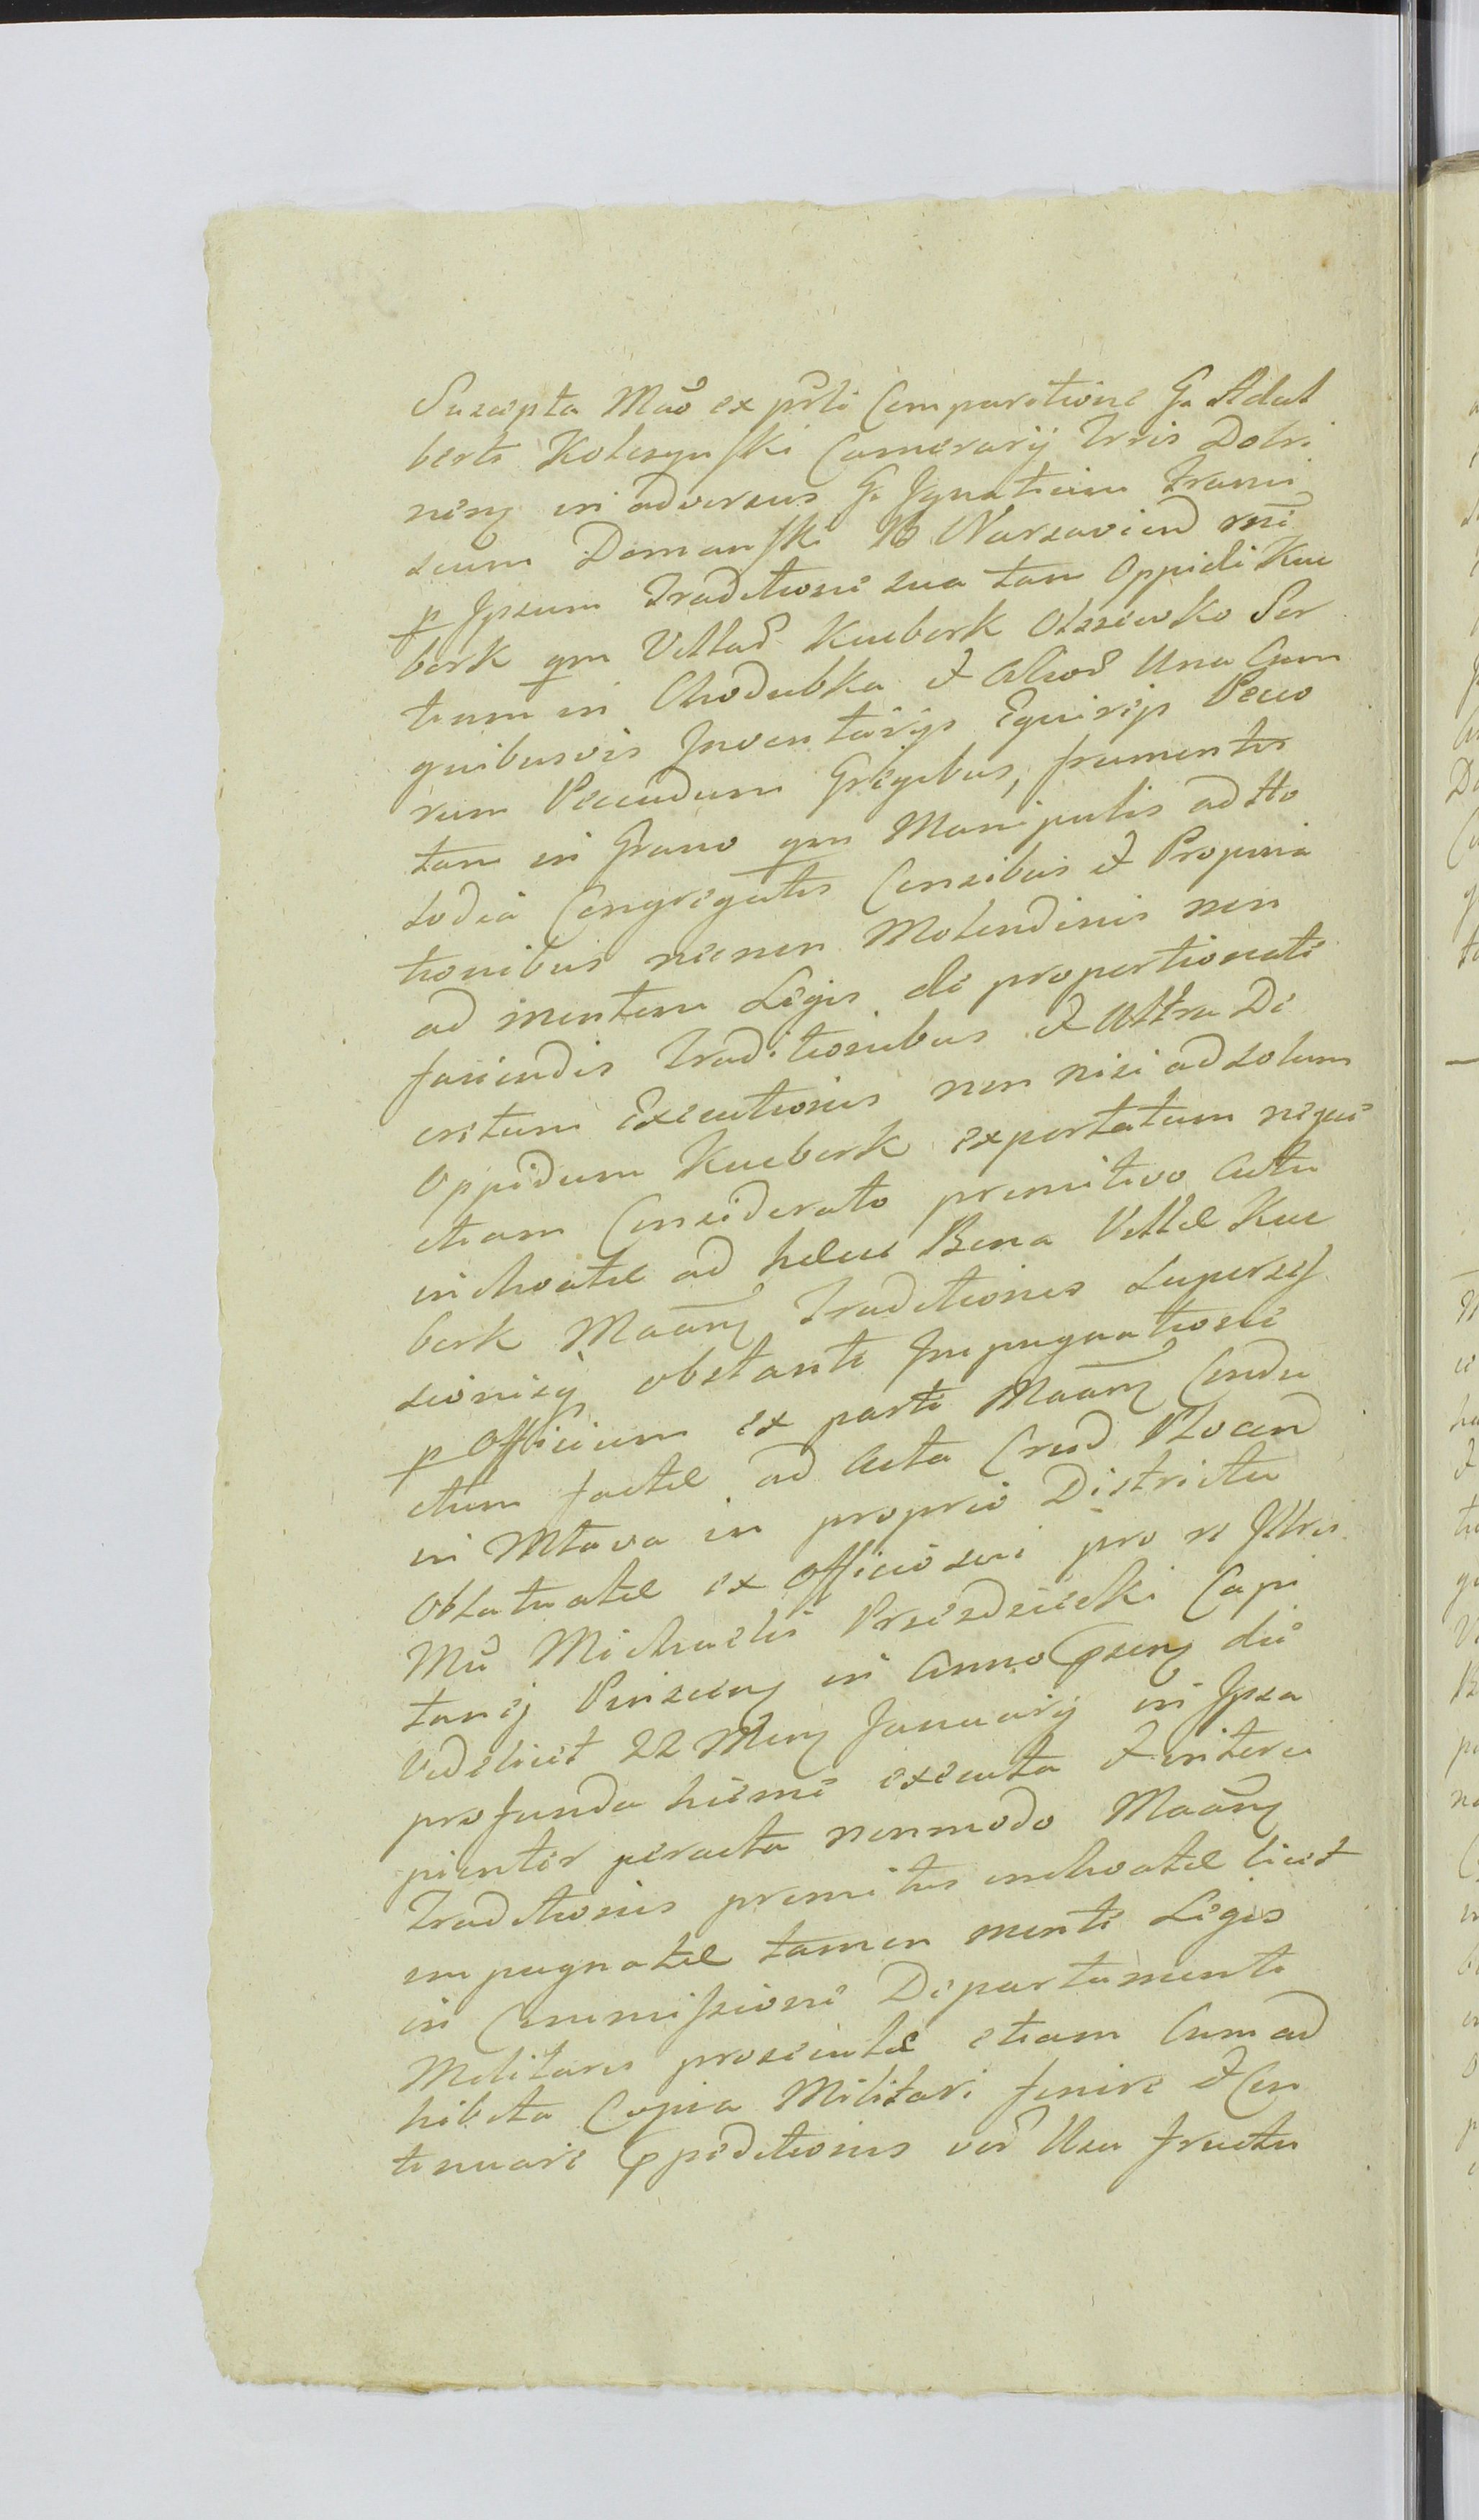 Suscepta Mão ex prti Comparitione G. Adal
berti Kolczynski Camerarij Trris Dobri
nẽn in adversus G. Ignatium Franci
scum Domanski B Varsavien rnẽ
p Ipsum Traditione sua tam Oppidi Kuc
bork qm Villar Kucbork Olszewko Sor
tium in Chodubka et Aliar Una Cum
quibusvis Inventarijs Equirejs Peco
rum Pecudum Gregibus, frumentis
tam in Grano qm Manipulis ad Ho
rodia Congregatis Censibus et Propina
tionibus necnon Molendinis non
ad mentem Legis de proportionate
faciendis Traditionibus et Ultra De
cretum Executionis non nisi ad solum
Oppidum Kucbork exportatum neque
etiam Considerato premitivo Actu
inchoatæ ad hæcce Bona Villæ Kuc
bork Maãn Traditionis supersef
sionisq obstante Impugnatione
p Officium ex parte Maãn Condu
ctum factæ ad Acta Crend Plocen
in Mlava in proprio Districtu
Oblatuatæ ex Officio sui pro re Illris
Mũ Michaelis Przezdziecki Capi
tanej Pinscen in Anno Præsen die
videlicet 22 Men January in Ipsa
profunda hieme executa et interu
pienter peracta nonmodo Maãn
Traditionis premitus inchoatæ licet
impugnatæ tamen mente Legis
in Commissione Departamenti
Militaris proseintæ etiam Cum ad
hibita Copia Militari finire et Con
tinuare Expeditionis ver Usu fructu